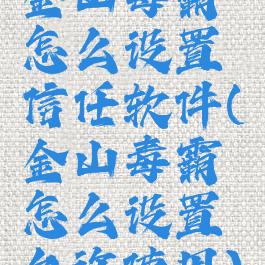 金山毒霸
怎么设置
信任软件(
金山毒霸
怎么设置